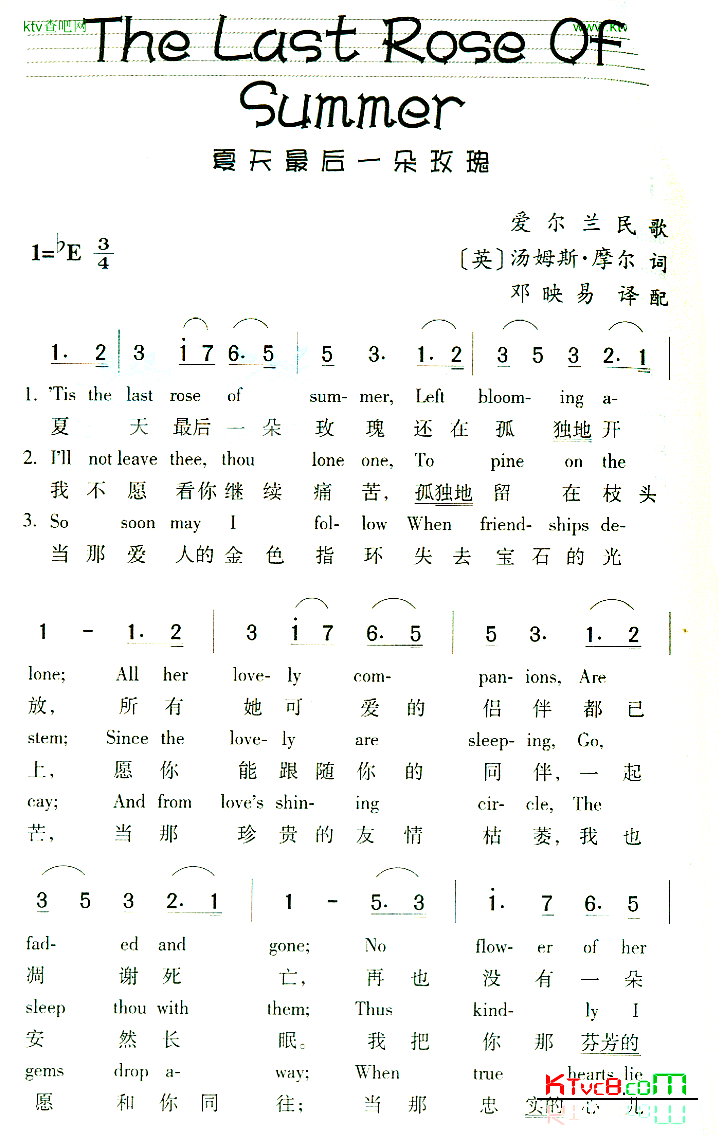 ktv杏吧网
www.ktv
The Last Rose Of
Summer
夏天最后一朵玫瑰
爱尔兰民歌
1=♭E 3/4
〔英〕汤姆斯·摩尔 词
邓映易 译配
1· 2 | 3 i 7 6· 5 | 5 3· 1· 2 | 3 5 3 2· 1 |
1. 'Tis the last rose of sum- mer, Left bloom- ing a-
夏 天 最后 一 朵 玫 瑰 还 在 孤 独地 开
2. I'll not leave thee, thou lone one, To pine on the
我 不 愿 看你 继 续 痛 苦, 孤独地 留 在 枝 头
3. So soon may I fol- low When friend- ships de-
当 那 爱 人的 金 色 指 环 失 去 宝 石 的 光
1 - 1· 2 | 3 i 7 6· 5 | 5 3· 1· 2 |
lone; All her love- ly com- pan- ions, Are
放, 所 有 她 可 爱 的 侣 伴 都 已
stem; Since the love- ly are sleep- ing, Go,
上, 愿 你 能 跟 随 你 的 同 伴, 一 起
cay; And from love's shin- ing cir- cle, The
芒, 当 那 珍 贵 的 友 情 枯 萎, 我 也
3 5 3 2· 1 | 1 - 5· 3 | i· 7 6· 5
fad- ed and gone; No flow- er of her
凋 谢 死 亡, 再 也 没 有 一 朵
sleep thou with them; Thus kind- ly I
安 然 长 眠。 我 把 你 那 芬芳的
gems drop a- way; When true hearts lie
愿 和 你 同 往; 当 那 忠 实的 心 儿
KTvc8.com